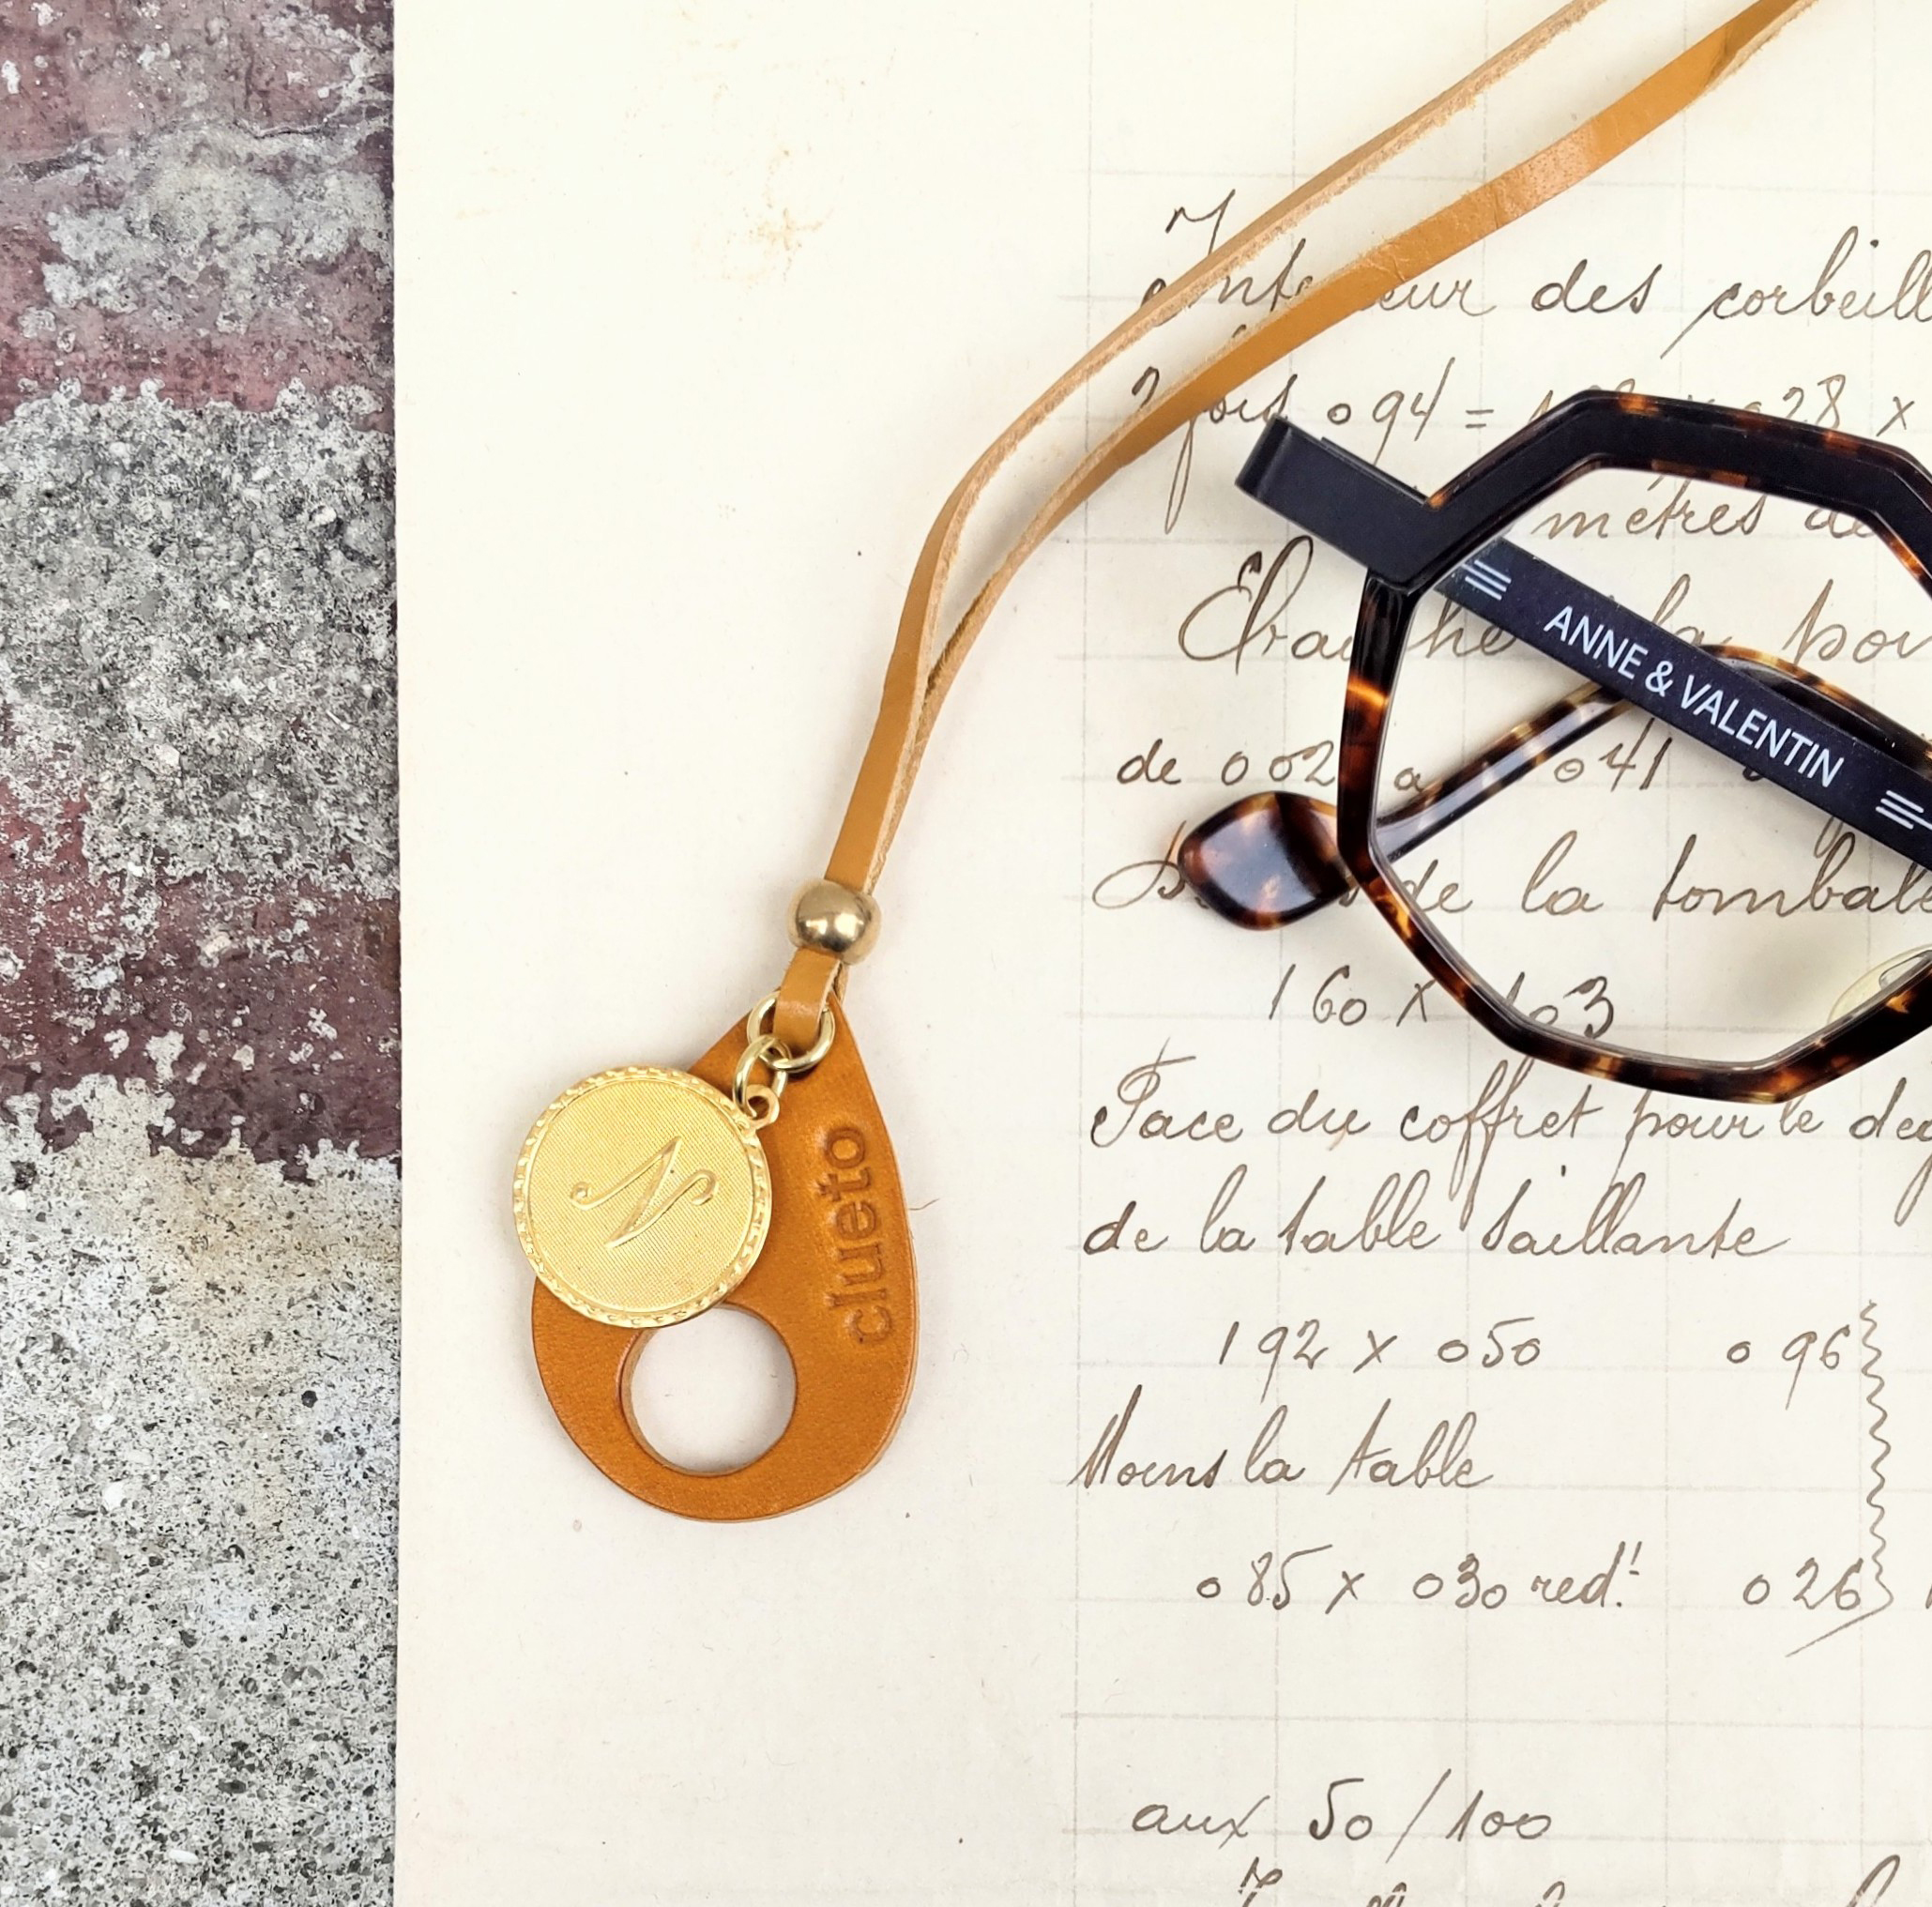 des corbeill
094 =
028 x
mètres de
la
de 002 a 041
de la tombale
160 x 103
Face du coffret pour le deg
de la table saillante
192 x 050 096
Moins la table
085 x 030 red.t 026
aux 50/100
ANNE & VALENTIN
N
clueto